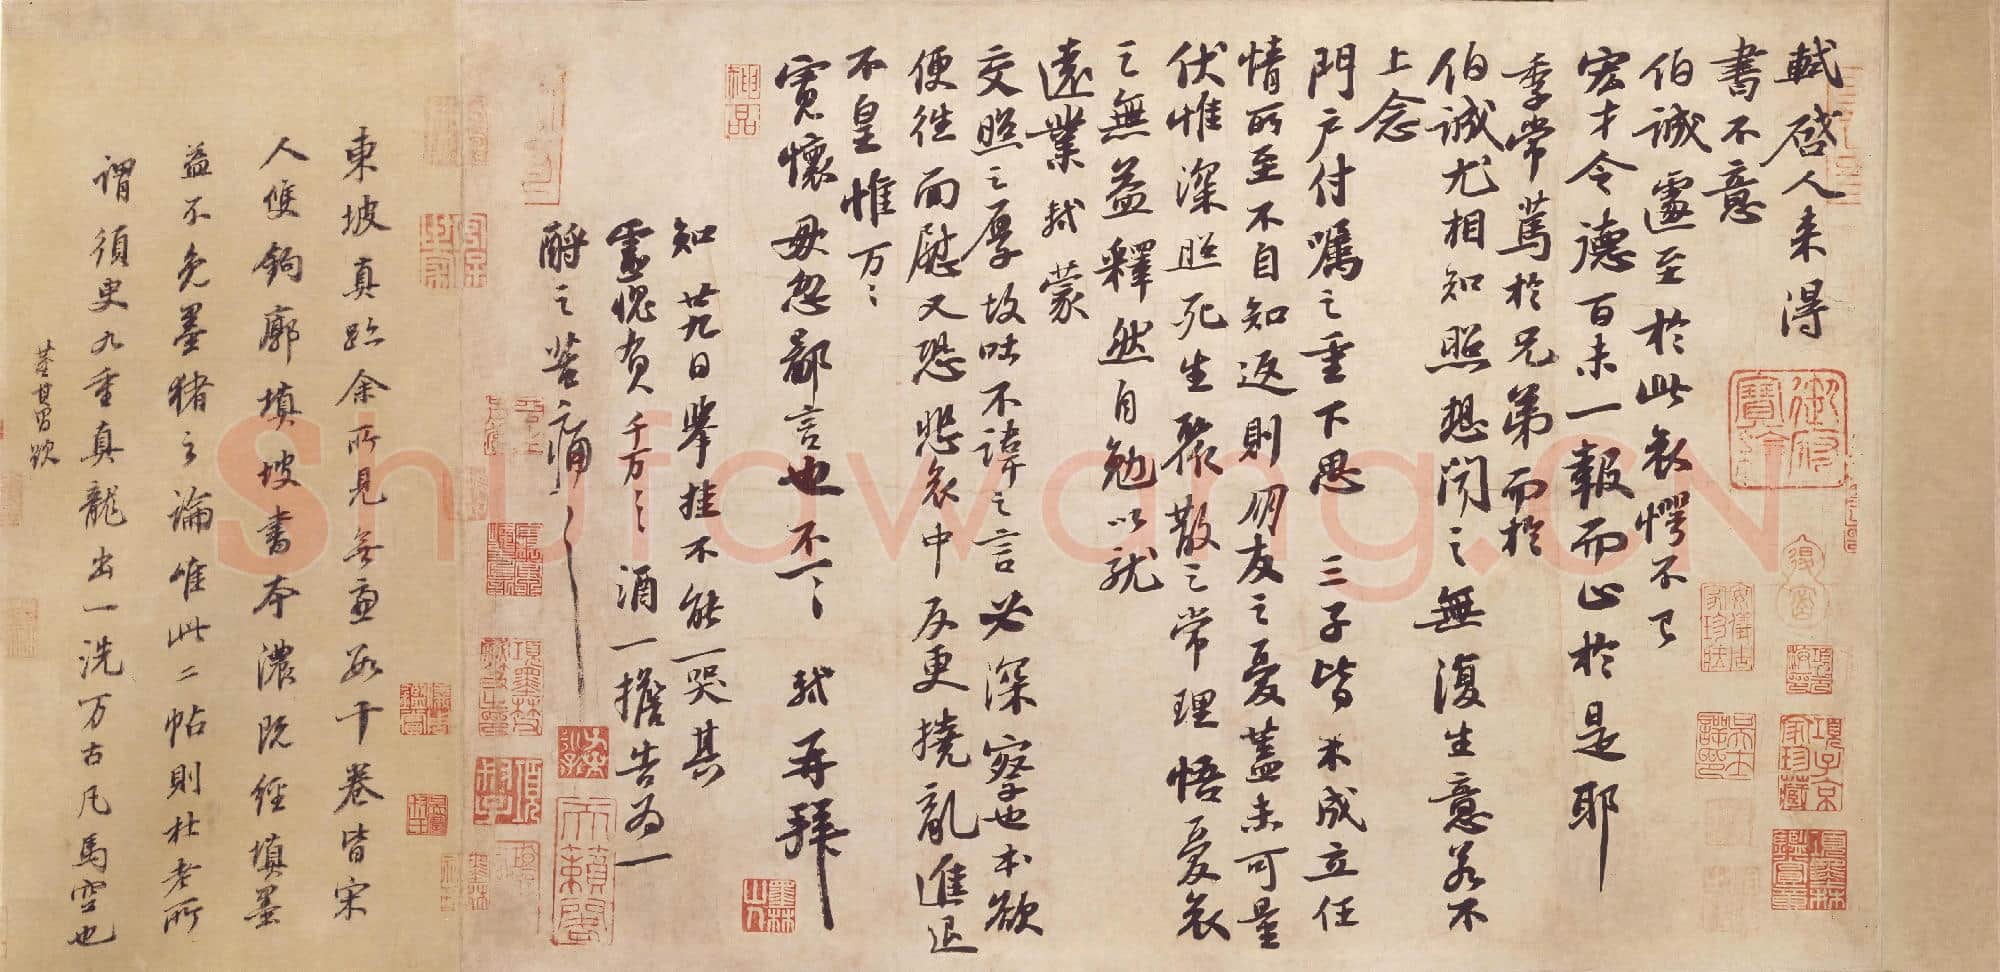 軾啓人来得
書不意
伯誠遽至於此哀愕不已
宏才令德百未一報而止於是耶
季常篤於兄弟而於
伯誠尤相知照想聞之無復生意若不
上念
門户付囑之重下思三子皆未成立任
情所至不自知返則朋友之憂蓋未可量
伏惟深照死生聚散之常理悟憂哀
之無益釋然自勉以就
遠業軾蒙
交照之厚故吐不諱之言必深察也本欲
便往面慰又恐悲哀中反更撓亂進退
不皇惟万〻
寬懷毋忽鄙言也不一〻軾再拜
知廿九日舉挂不能一哭其
靈愧負千万〻酒一擔告為一
酹之苦痛〻
神品
東坡真跡余所見無慮數十卷皆宋
人雙鉤廓填坡書本濃既經填墨
益不免墨猪之論唯此二帖則杜老所
謂須臾九重真龍出一洗万古凡馬空也
董其昌跋
御府寶繪
項子京家珍藏
項墨林鑑賞章
安儀周家珍藏
墨林山人
天籟閣
Shufawang.CN